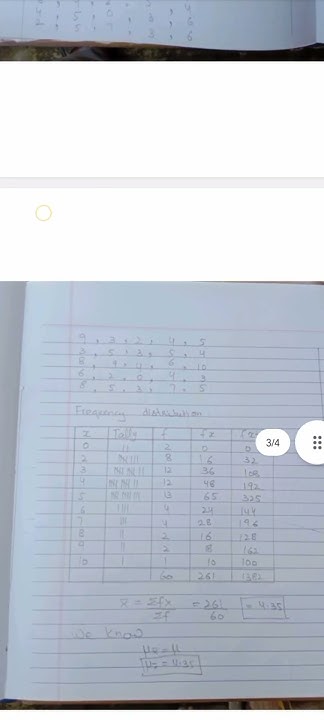 2 , 5 , 7 , 3 , 6
9 , 3 , 2 , 4 , 5
3 , 5 , 3 , 5 , 4
8 , 9 , 4 , 6 , 10
6 , 2 , 0 , 4 , 3
8 , 5 , 3 , 7 , 5
Frequency distribution
x Tally f fx
0 || 2 0 0
2 8 16 32
3 12 36 108
4 12 48 192
5 13 65 325
6 |||| 4 24 144
7 4 28 196
8 || 2 16 128
9 || 2 18 162
10 | 1 10 100
60 261 1382
x̄ = Σfx / Σf = 261 / 60 = 4.35
We know
μx̄ = μ
μx̄ = 4.35
3/4